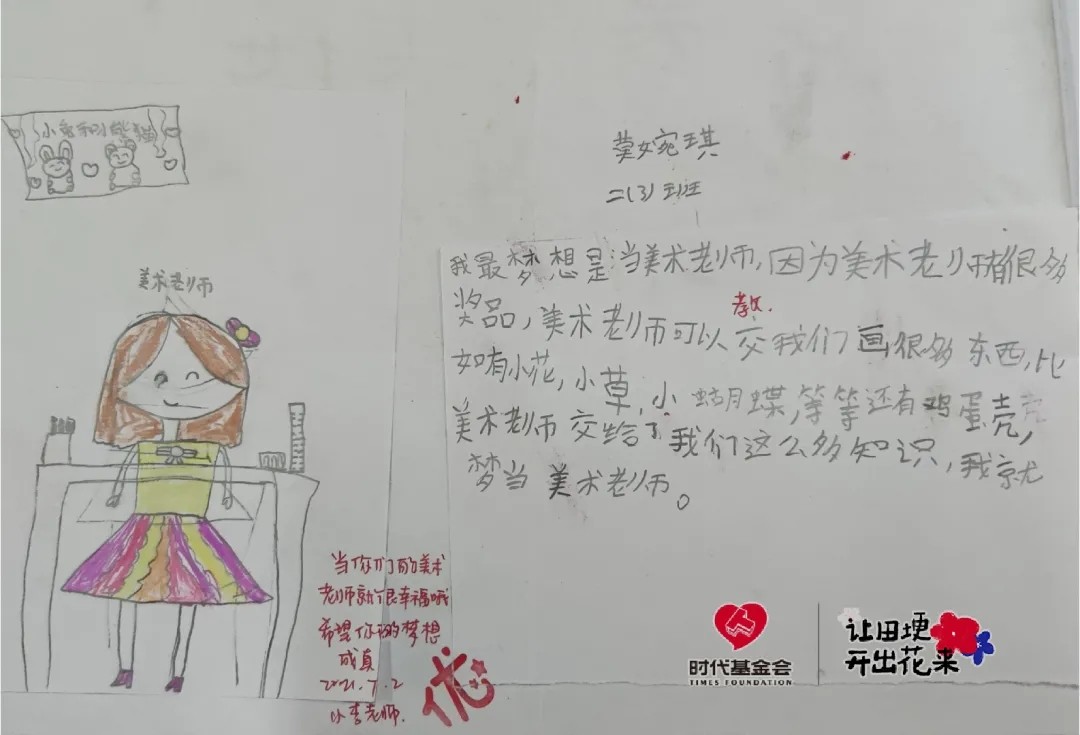 小兔和小熊猫
莫婉琪
二(3)班
美术老师
我最梦想是当美术老师,因为美术老师有很多
奖品,美术老师可以交我们画很多东西,比
教.
如有小花,小草,小蝴蝶,等等还有鸡蛋壳,
美术老师交给了我们这么多知识,我就
梦当美术老师。
当你们的美术
老师就很幸福哦
希望你的梦想
成真
2021.7.2
小李老师.
优
时代基金会
TIMES FOUNDATION
让田埂
开出花来